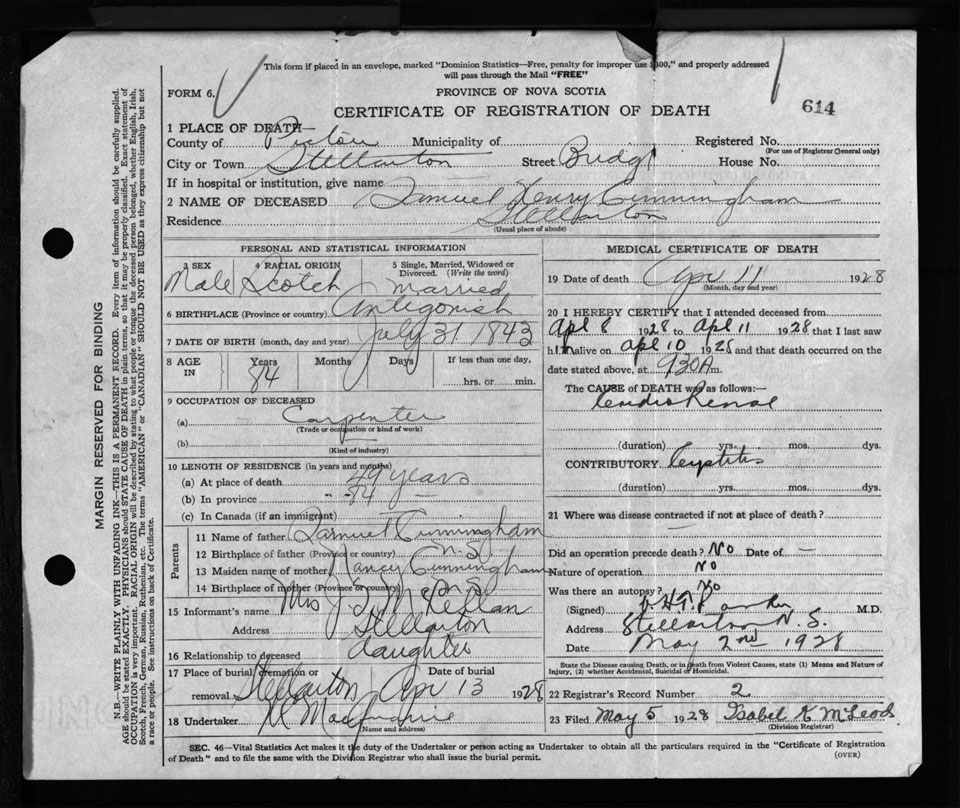 This form if placed in an envelope, marked "Dominion Statistics—Free, penalty for improper use $300," and properly addressed
will pass through the Mail "FREE"
FORM 6.
PROVINCE OF NOVA SCOTIA
CERTIFICATE OF REGISTRATION OF DEATH
614
1 PLACE OF DEATH—
County of Pictou Municipality of Registered No.
(For use of Registrar General only)
City or Town Stellarton Street Bridge House No.
If in hospital or institution, give name
2 NAME OF DECEASED Samuel Henry Cunningham
Residence Stellarton
(Usual place of abode)
PERSONAL AND STATISTICAL INFORMATION
3 SEX 4 RACIAL ORIGIN 5 Single, Married, Widowed or Divorced. (Write the word)
Male Scotch Married
6 BIRTHPLACE (Province or country) Antigonish
7 DATE OF BIRTH (month, day and year) July 31 1843
8 AGE IN Years Months Days If less than one day,
84 hrs. or min.
9 OCCUPATION OF DECEASED
(a) Carpenter
(Trade or occupation or kind of work)
(b)
(Kind of industry)
10 LENGTH OF RESIDENCE (in years and months)
(a) At place of death 49 years
(b) In province 84 —
(c) In Canada (if an immigrant)
Parents
11 Name of father Samuel Cunningham
12 Birthplace of father (Province or country) N.S.
13 Maiden name of mother Nancy Cunningham
14 Birthplace of mother (Province or country) N.S.
15 Informant's name Mrs J.
Address Stellarton
16 Relationship to deceased daughter
17 Place of burial, cremation or removal Stellarton Date of burial Apr 13 1928
18 Undertaker
(Name and address)
MEDICAL CERTIFICATE OF DEATH
19 Date of death Apr 11 1928
(Month, day and year)
20 I HEREBY CERTIFY that I attended deceased from
Apl 8 1928 to Apl 11 1928 that I last saw
him alive on apl 10 1928 and that death occurred on the
date stated above, at 930 A m.
The CAUSE of DEATH was as follows:—
Cardio Renal
(duration) yrs. mos. dys.
CONTRIBUTORY Cystitis
(duration) yrs. mos. dys.
21 Where was disease contracted if not at place of death?
—
Did an operation precede death? No Date of —
Nature of operation No
Was there an autopsy? No
(Signed) M.D.
Address Stellarton N.S.
Date May 2nd 1928
State the Disease causing Death, or in death from Violent Causes, state (1) Means and Nature of
Injury, (2) whether Accidental, Suicidal or Homicidal.
22 Registrar's Record Number 2
23 Filed May 5 1928 Isabel K McLeod
(Division Registrar)
SEC. 46—Vital Statistics Act makes it the duty of the Undertaker or person acting as Undertaker to obtain all the particulars required in the "Certificate of Registration
of Death" and to file the same with the Division Registrar who shall issue the burial permit.
(OVER)
MARGIN RESERVED FOR BINDING
N.B.—WRITE PLAINLY WITH UNFADING INK—THIS IS A PERMANENT RECORD. Every item of information should be carefully supplied.
AGE should be stated EXACTLY. PHYSICIANS should STATE CAUSE OF DEATH in plain terms, so that it may be properly classified. Exact statement of
OCCUPATION is very important. RACIAL ORIGIN will be described by stating to what people or tongue the deceased person belonged, whether English, Irish,
Scotch, French, German, Russian, Ruthenian, etc. The terms "AMERICAN" or "CANADIAN" SHOULD NOT BE USED as they express citizenship but not
a race or people. See instructions on back of Certificate.